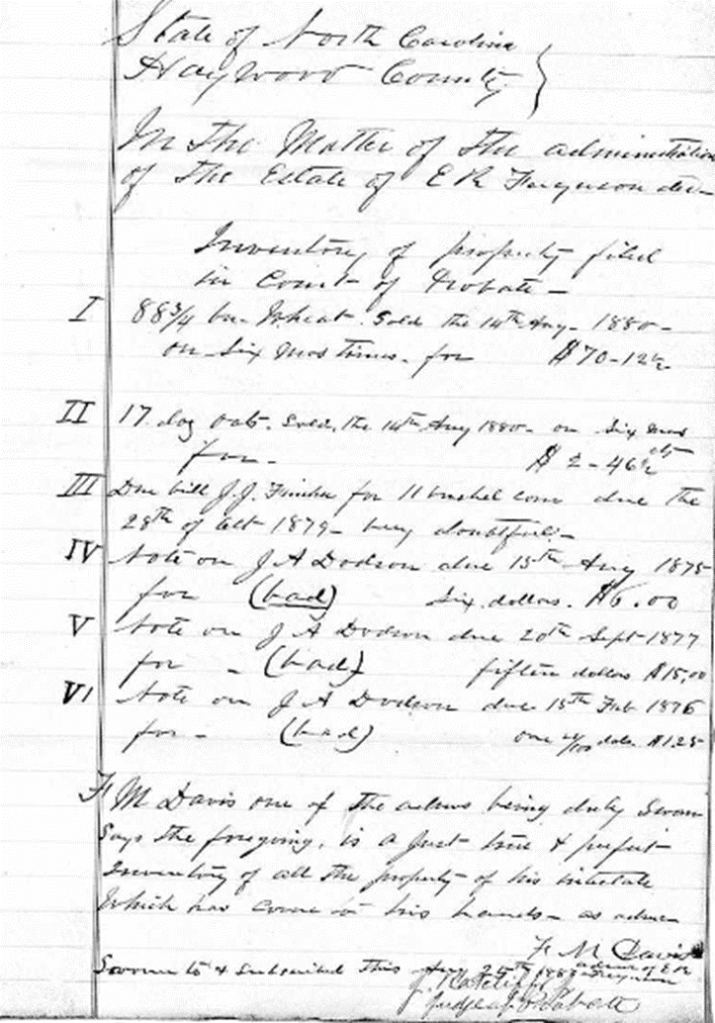 State of North Carolina
Haywood County }
In the Matter of the administration
of the Estate of E R Ferguson dec-
Inventory of property filed
in Court of Probate -
I 88 3/4 bu. Wheat. Sold the 14th Aug - 1880 -
on Six Mos time - for $70-12½
II 17 doz oats. Sold, the 14th Aug 1880 - on Six mos
for - $2-46½ cts
III Due bill J. J. for 11 bushel corn due the
28th of Oct 1879 - very doubtful -
IV Note on J A Dodson due 15th Aug 1875
for (bad) Six dollars. $6.00
V Note on J A Dodson due 20th Sept 1877
for - (bad) fifteen dollars $15.00
VI Note on J A Dodson due 15th Feb 1876
for - (bad) one dols. $1.25
F M Davis one of the admrs being duly Sworn
Says the foregoing, is a just true & perfect
Inventory of all the property of his intestate
Which has come to his hands - as admr -
F. M Davis
Sworn to & subscribed this Aug of E R Ferguson
Judge of Probate